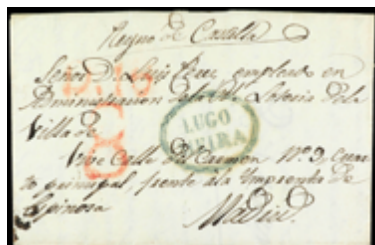 Reyno de Castilla
Señor D. Luis Perez empleado en
Administracion de la Rl. Loteria de la
Villa de
Vive Calle del Carmen Nº 9, Cuar
to principal, frente ala Imprenta de
Espinosa
Madrid
LUGO